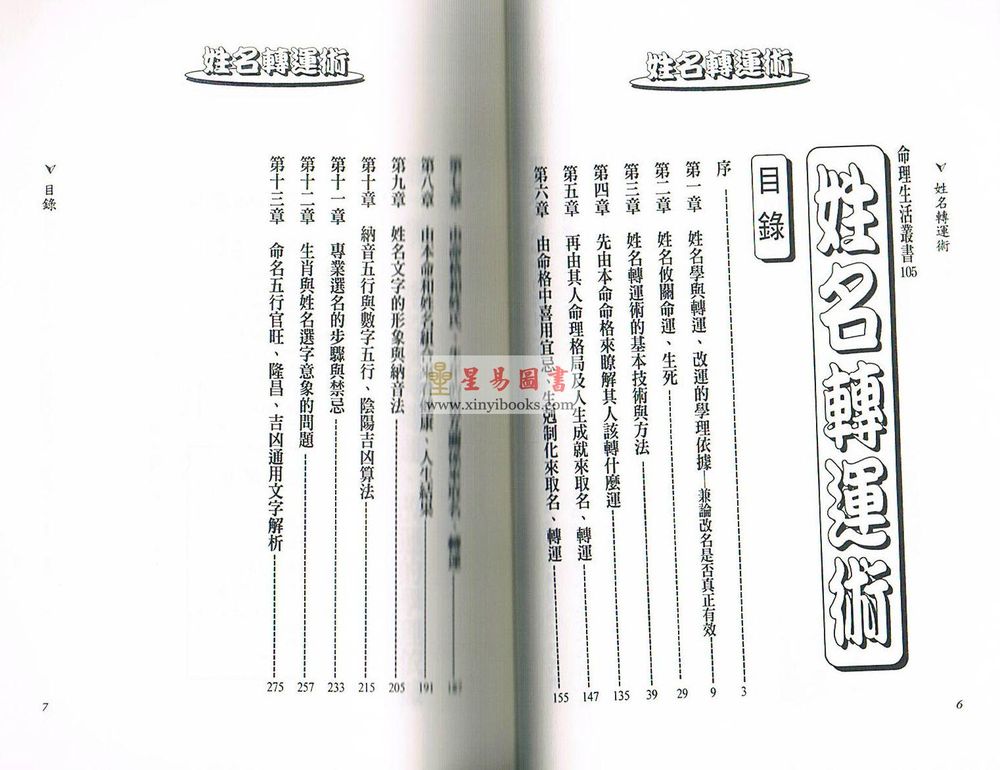 姓名轉運術
▼姓名轉運術
命理生活叢書105
姓名轉運術
目錄
序 3
第一章 姓名學與轉運、改運的學理依據—兼論改名是否真正有效 9
第二章 姓名攸關命運、生死 29
第三章 姓名轉運術的基本技術與方法 39
第四章 先由本命命格來瞭解其人該轉什麼運 135
第五章 再由其人命理格局及人生成就來取名、轉運 147
第六章 由命格中喜用宜忌、生剋制化來取名、轉運 155
6
姓名轉運術
第七章
轉運
第八章 由本命和姓名組合 康、人生結果 191
第九章 姓名文字的形象與納音法 205
第十章 納音五行與數字五行、陰陽吉凶算法 215
第十一章 專業選名的步驟與禁忌 233
第十二章 生肖與姓名選字意象的問題 257
第十三章 命名五行官旺、隆昌、吉凶通用文字解析 275
▼目錄
7
星易圖書
www.xinyibooks.com